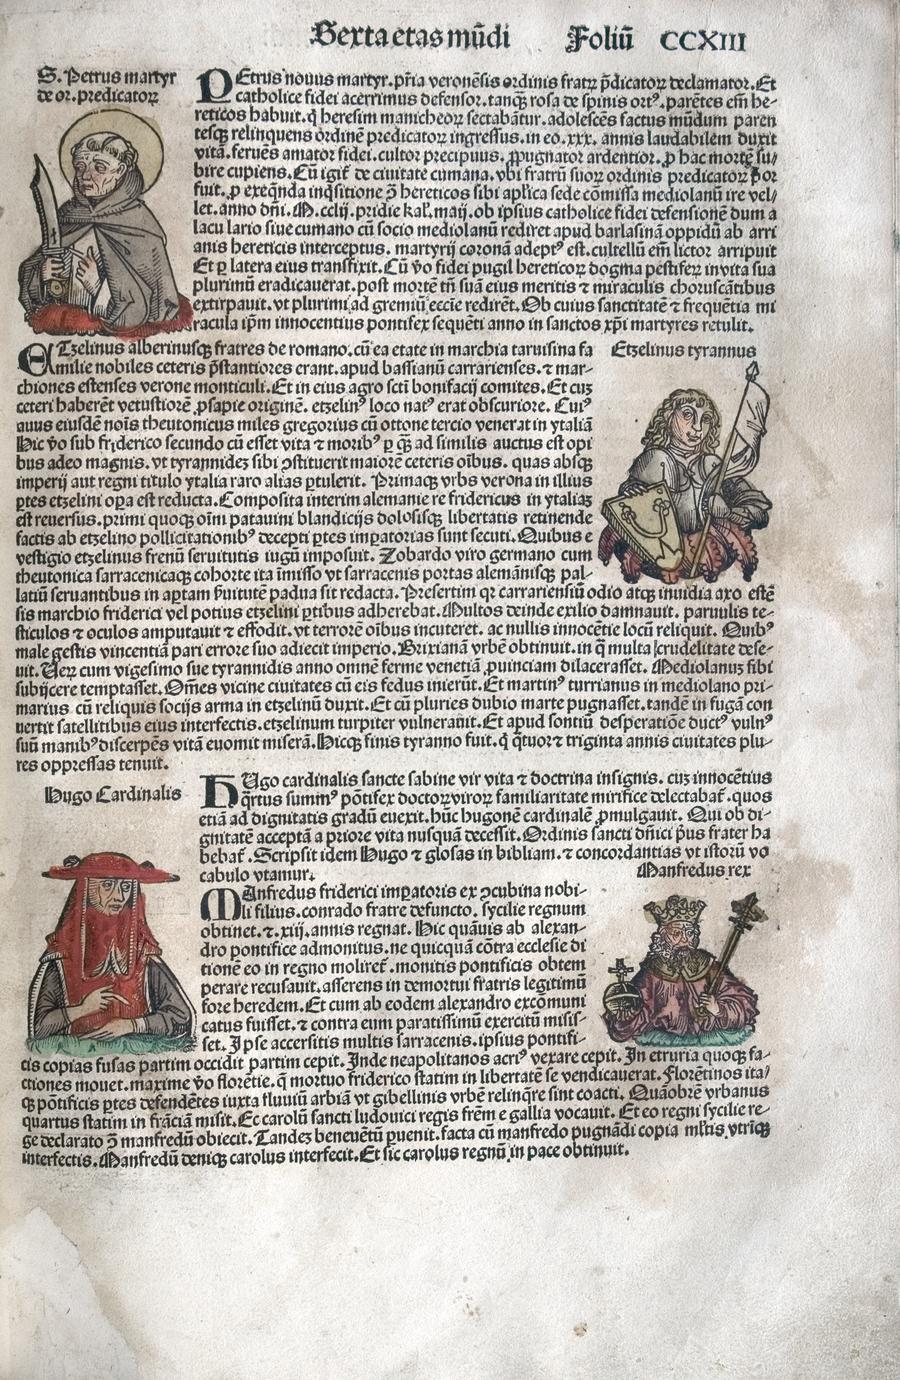 Sexta etas mũdi Foliũ CCXIII
S. Petrus martyr
de or. predicatoꝝ
PEtrus nouus martyr. pr̃ia veronẽsis ordinis fratꝝ p̃dicatoꝝ declamator. Et
catholice fidei acerrimus defensor. tanq̃ rosa de spinis ort⁹. parẽtes em̃ he-
reticos habuit. q̃ heresim manicheoꝝ sectabãtur. adolescẽs factus mũdum paren
tesq̃ relinquens ordinẽ predicatoꝝ ingressus. in eo .xxx. annis laudabilem duxit
vitã. feruẽs amator fidei. cultor precipuus. ꝓpugnator ardentior. ꝓ hac mortẽ su/
bire cupiens. Cũ igit̃ de ciuitate cumana. vbi fratrũ suoꝝ ordinis predicatoꝝ p̃or
fuit. ꝓ exeq̃nda inq̃sitione ꝯ̃ hereticos sibi apl̃ica sede cõmissa mediolanũ ire vel/
let. anno dñi. M. cclij. pridie kal̃. maij. ob ipsius catholice fidei defensionẽ dum a
lacu lario siue cumano cũ socio mediolanũ rediret apud barlasinã oppidũ ab arri
anis hereticis interceptus. martyrij coronã adept⁹ est. cultellũ em̃ lictor arripuit
Et ꝑ latera eius transfixit. Cũ v̊o fidei pugil hereticoꝝ dogma pestifeꝝ in vita sua
plurimũ eradicauerat. post mortẽ tñ suã eius meritis ⁊ miraculis choruscãtibus
extirpauit. vt plurimi ad gremiũ eccẽ redirẽt. Ob cuius sanctitatẽ ⁊ frequẽtia mi
racula ip̃m innocentius pontifex sequẽti anno in sanctos xp̃i martyres retulit.
Etzelinus tyrannus
ETzelinus alberinusq̃ fratres de romano. cũ ea etate in marchia taruisina fa
milie nobiles ceteris p̃stantiores erant. apud bassianũ carrarienses. ⁊ mar-
chiones estenses verone monticuli. Et in eius agro sctĩ bonifacij comites. Et cuꝫ
ceteri haberẽt vetustiorẽ ꝓsapie originẽ. etzelin⁹ loco nat⁹ erat obscuriore. Cui⁹
auus eiusdẽ noĩs theutonicus miles gregorius cũ ottone tercio venerat in ytaliã
Hic v̊o sub friderico secundo cũ esset vita ⁊ morib⁹ ꝑ q̃ ad similis auctus est opi
bus adeo magnis. vt tyrannideꝫ sibi ꝯstituerit maiorẽ ceteris oĩbus. quas absq̃
imperij aut regni titulo ytalia raro alias ꝑtulerit. Primaq̃ vrbs verona in illius
ꝑtes etzelini oꝑa est reducta. Composita interim alemanie re fridericus in ytaliaꝫ
est reuersus. primi quoq̃ oĩm patauini blandicijs dolosisq̃ libertatis retinende
factis ab etzelino pollicitationib⁹ decepti ꝑtes imꝑatorias sunt secuti. Quibus e
vestigio etzelinus frenũ seruitutis iugũ imposuit. Zobardo viro germano cum
theutonica sarracenicaq̃ cohorte ita ĩmisso vt sarracenis portas alemãnisq̃ pal-
latiũ seruantibus in aꝑtam ẜuitutẽ padua sit redacta. Presertim qꝛ carrariensiũ odio atq̃ inuidia axo estẽ
sis marchio friderici vel potius etzelini ꝑtibus adherebat. Multos deinde exilio damnauit. paruulis te-
sticulos ⁊ oculos amputauit ⁊ effodit. vt terrorẽ oĩbus incuteret. ac nullis innocẽtie locũ reliquit. Quib⁹
male gestis vincentiã pari errore suo adiecit imperio. Brixianã vrbẽ obtinuit. in q̃ multa crudelitate dese-
uit. Ueꝝ cum vigesimo sue tyrannidis anno omnẽ ferme venetiã ꝓuinciam dilacerasset. Mediolanuꝫ sibi
subijcere temptasset. Om̃es vicine ciuitates cũ eis fedus inierũt. Et martin⁹ turrianus in mediolano pri-
marius cũ reliquis socijs arma in etzelinũ duxit. Et cũ pluries dubio marte pugnasset. tandẽ in fugã con
uertit satellitibus eius interfectis. etzelinum turpiter vulnerañt. Et apud sontiũ desperatiõe duct⁹ vuln⁹
suũ manib⁹ discerpẽs vitã euomit miserã. Hicq̃ finis tyranno fuit. q̃ q̃tuor ⁊ triginta annis ciuitates plu-
res oppressas tenuit.
Hugo Cardinalis
HUgo cardinalis sancte sabine vir vita ⁊ doctrina insignis. cuꝫ innocẽtius
q̃rtus summ⁹ põtifex doctoꝝ viroꝝ familiaritate mirifice delectabat̃. quos
etiã ad dignitatis gradũ euexit. hũc hugonẽ cardinalẽ ꝓmulgauit. Qui ob di-
gnitatẽ acceptã a priore vita nusquã decessit. Ordinis sancti dñici pũs frater ha
bebat̃. Scripsit idem Hugo ⁊ glosas in bibliam. ⁊ concordantias vt istorũ vo
cabulo vtamur.
Manfredus rex
MAnfredus friderici imꝑatoris ex ꝯcubina nobi-
li filius. conrado fratre defuncto. sycilie regnum
obtinet. ⁊ .xiij. annis regnat. Hic quãuis ab alexan-
dro pontifice admonitus. ne quicquã cõtra ecclesie di
tionẽ eo in regno moliret̃. monitis pontificis obtem
perare recusauit. asserens in demortui fratris legitimũ
fore heredem. Et cum ab eodem alexandro excõmuni
catus fuisset. ⁊ contra eum paratissimũ exercitũ misis-
set. Ipse accersitis multis sarracenis. ipsius pontifi-
cis copias fusas partim occidit partim cepit. Inde neapolitanos acri⁹ vexare cepit. In etruria quoq̃ fa-
ctiones mouet. maxime v̊o florẽtie. q̃ mortuo friderico statim in libertatẽ se vendicauerat. Florẽtinos ita/
q̃ põtificis ꝑtes defendẽtes iuxta fluuiũ arbiã vt gibellinis vrbẽ relinq̃re sint coacti. Quãobrẽ vrbanus
quartus statim in frãciã misit. Ec carolũ sancti ludouici regis frẽm e gallia vocauit. Et eo regni sycilie re-
ge declarato ꝯ̃ manfredũ obiecit. Tandeꝫ beneuẽtũ ꝑuenit. facta cũ manfredo pugnãdi copia ml̃tis vtriq̃
interfectis. Manfredũ deniq̃ carolus interfecit. Et sic carolus regnũ in pace obtinuit.